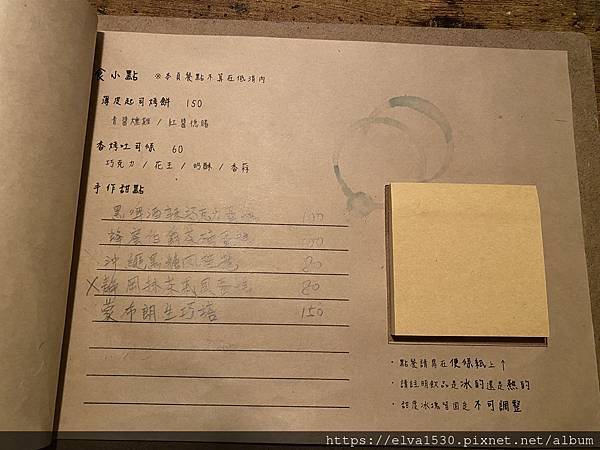 食小點 ※本頁餐點不算在低消內
薄皮起司烤餅 150
青醬燻雞 / 紅醬德腸
香烤吐司條 60
巧克力 / 花生 / 奶酥 / 香蒜
手作甜點
黑啤酒 100
蜂蜜伯爵 100
沖繩黑糖戚風蛋糕 80
X 靜岡抹茶戚風蛋糕 80
蒙布朗生巧塔 150
· 點餐請寫在便條紙上↑
· 請註明飲品是冰的還是熱的
· 甜度冰塊皆固定不可調整
https://elva1530.pixnet.net/album